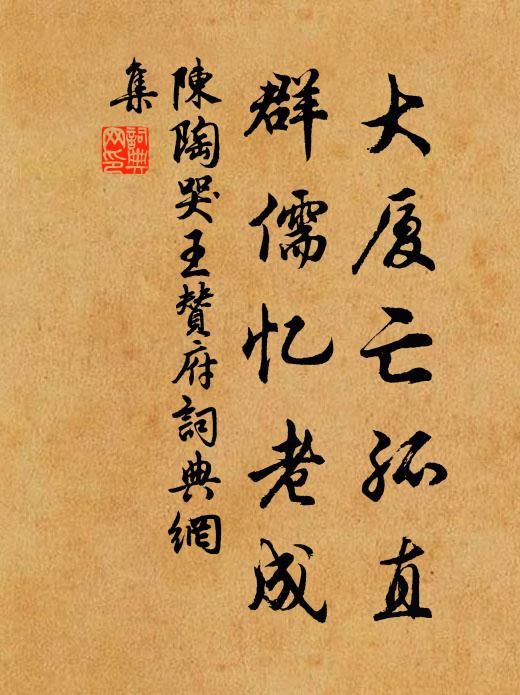 大厦亡孤直
群儒忆老成
陳陶哭王贊府詞典網
集
詞典
网印